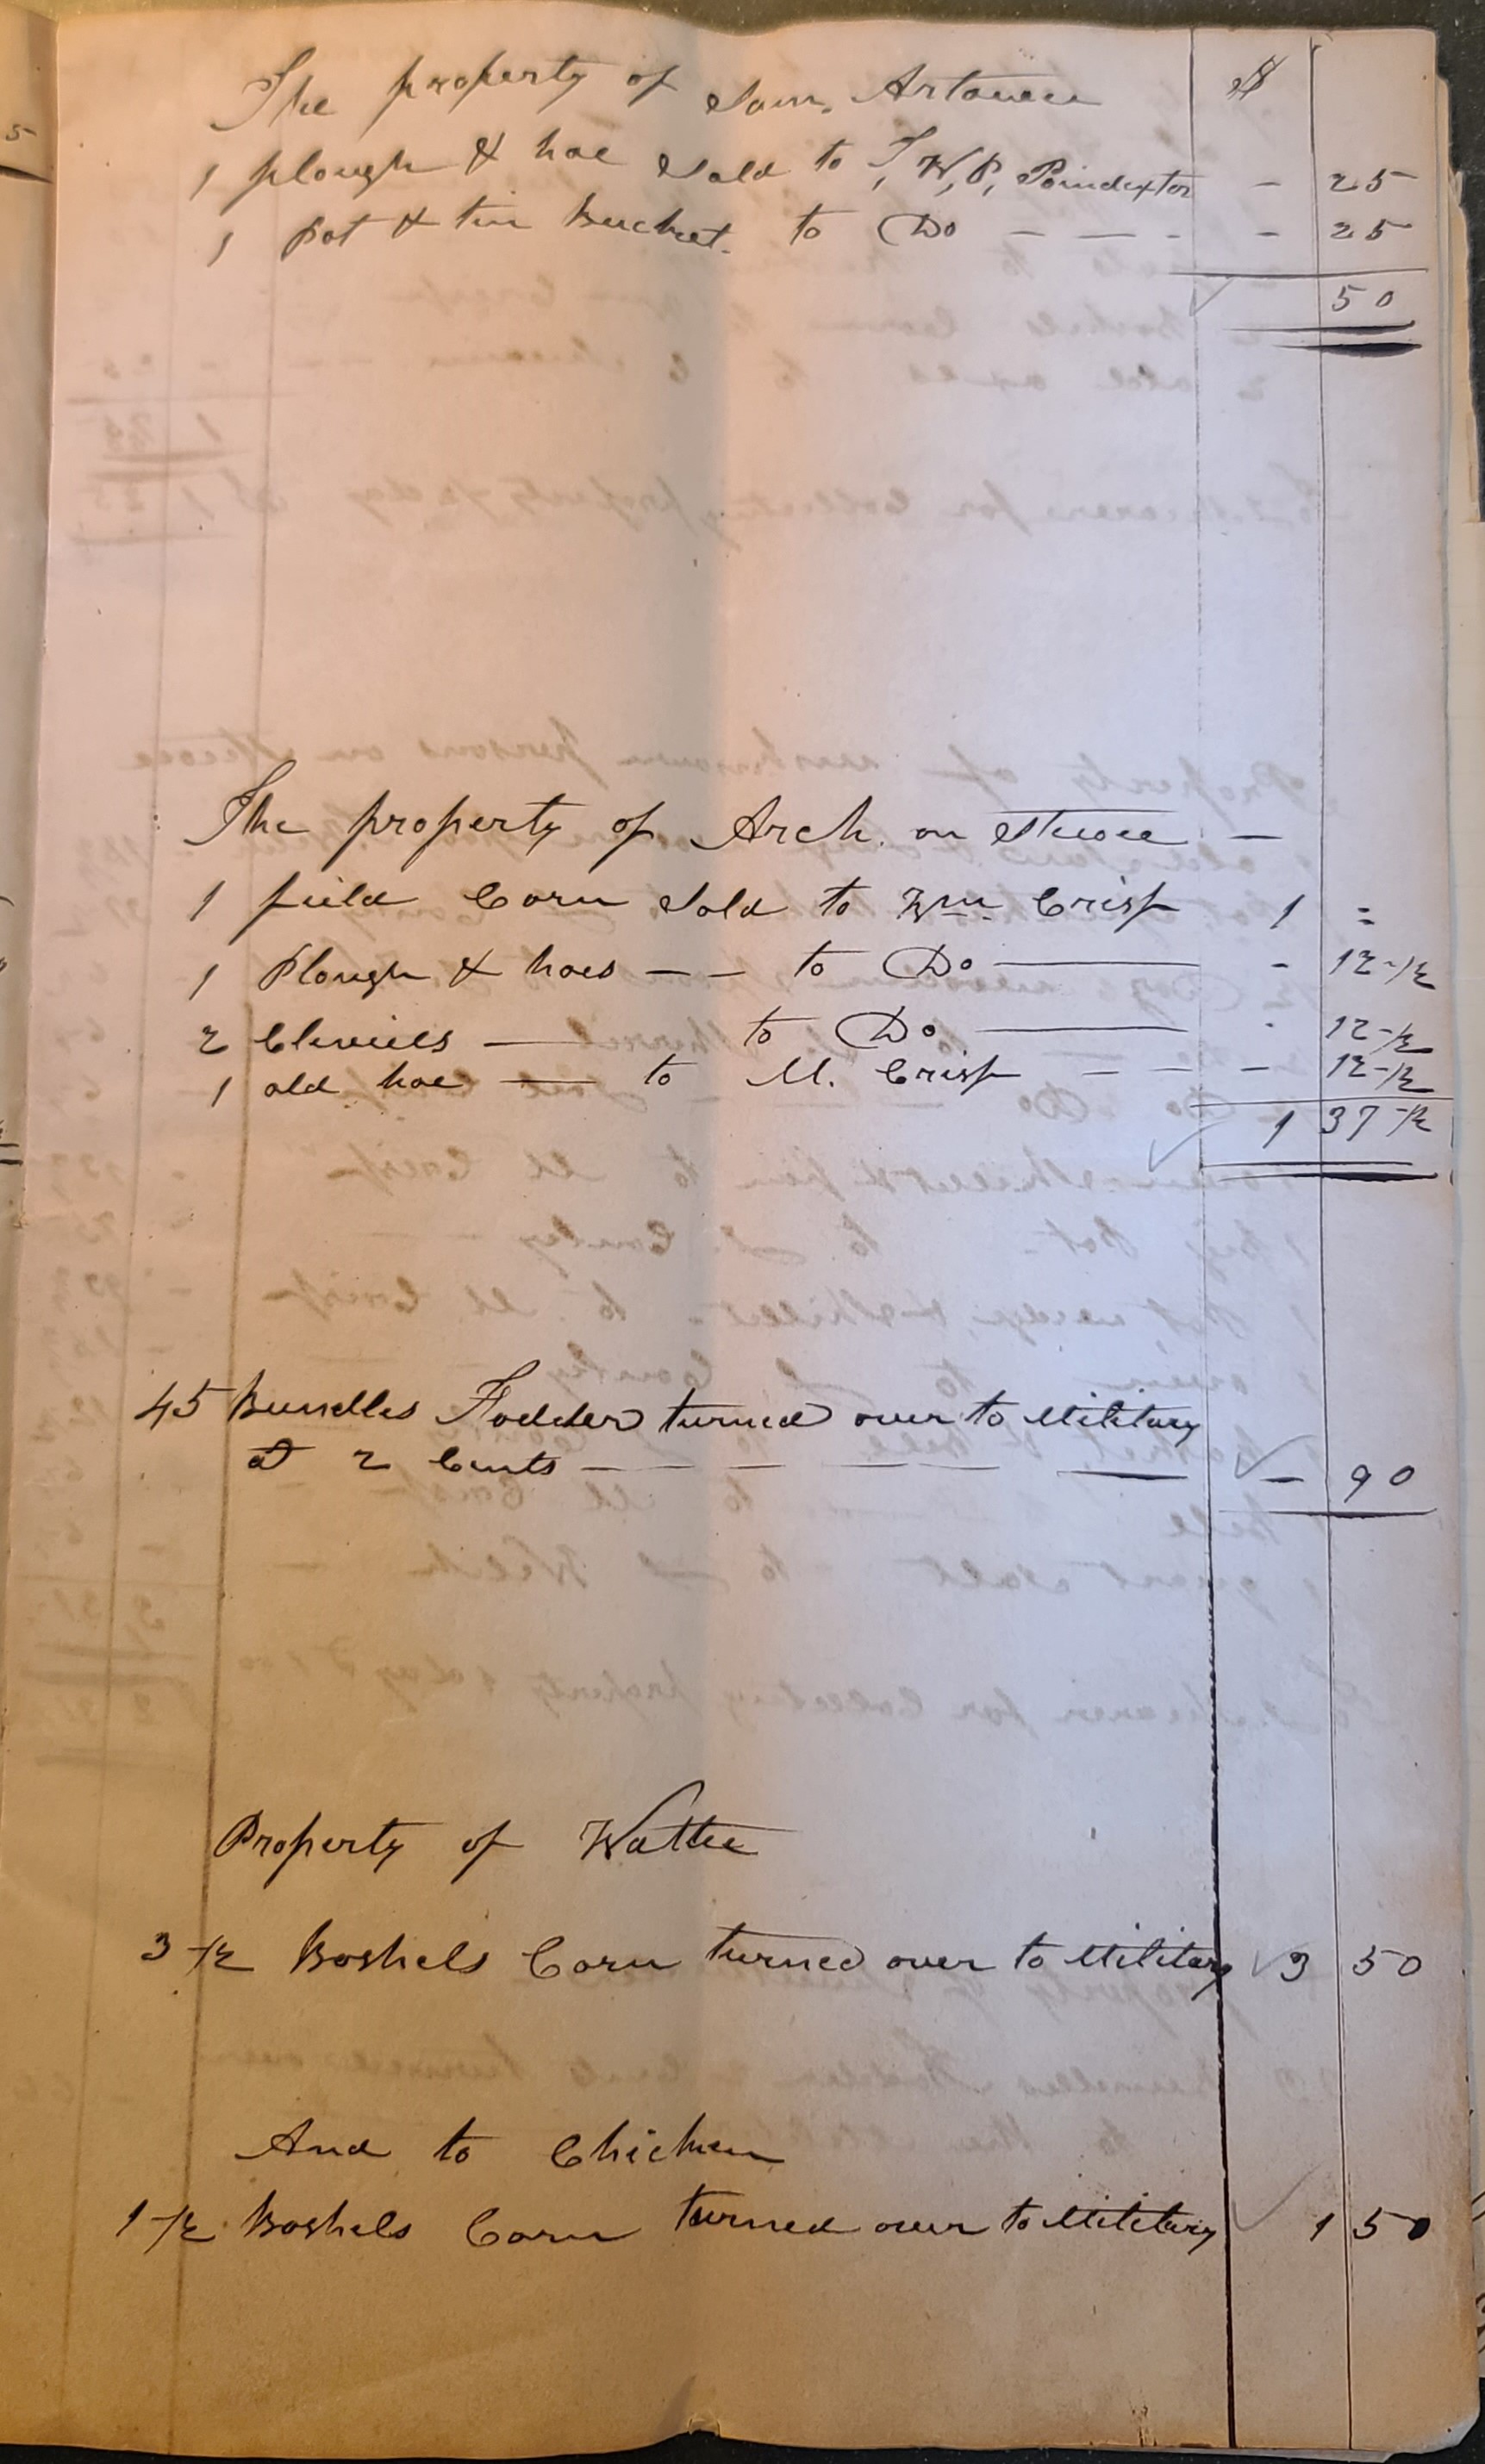 The property of Sam. Artowee $
1 plough & hoe Sold to T, W, P, Poindexter - 25
1 Pot & tin Bucket. to Do - - - - 25
50
The property of Arch. on Stecoee -
1 feild Corn Sold to Wm. Crisp 1 =
1 Plough & hoes - - to Do - - 12-1/2
2 Clevises - to Do - - 12-1/2
1 old hoe - to M. Crisp - - - 12-1/2
1 37-1/2
45 Bundles Fodder turned over to Military
at 2 Cents - - - - - - - 90
Property of Wattee
3 1/2 Boshels Corn turned over to Military 3 50
And to Chicken
1 1/2 Boshels Corn turned over to Military 1 50